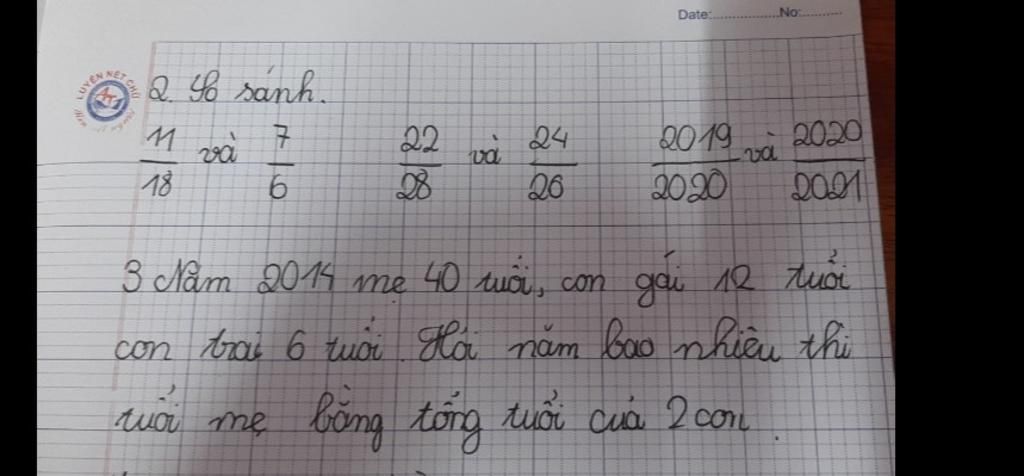 Date:..................No:...........
LUYỆN NÉT CHỮ
2. So sánh.
11/18 và 7/6 22/28 và 24/26 2019/2020 và 2020/2021
3 Năm 2014 mẹ 40 tuổi, con gái 12 tuổi
con trai 6 tuổi. Hỏi năm bao nhiêu thì
tuổi mẹ bằng tổng tuổi của 2 con.